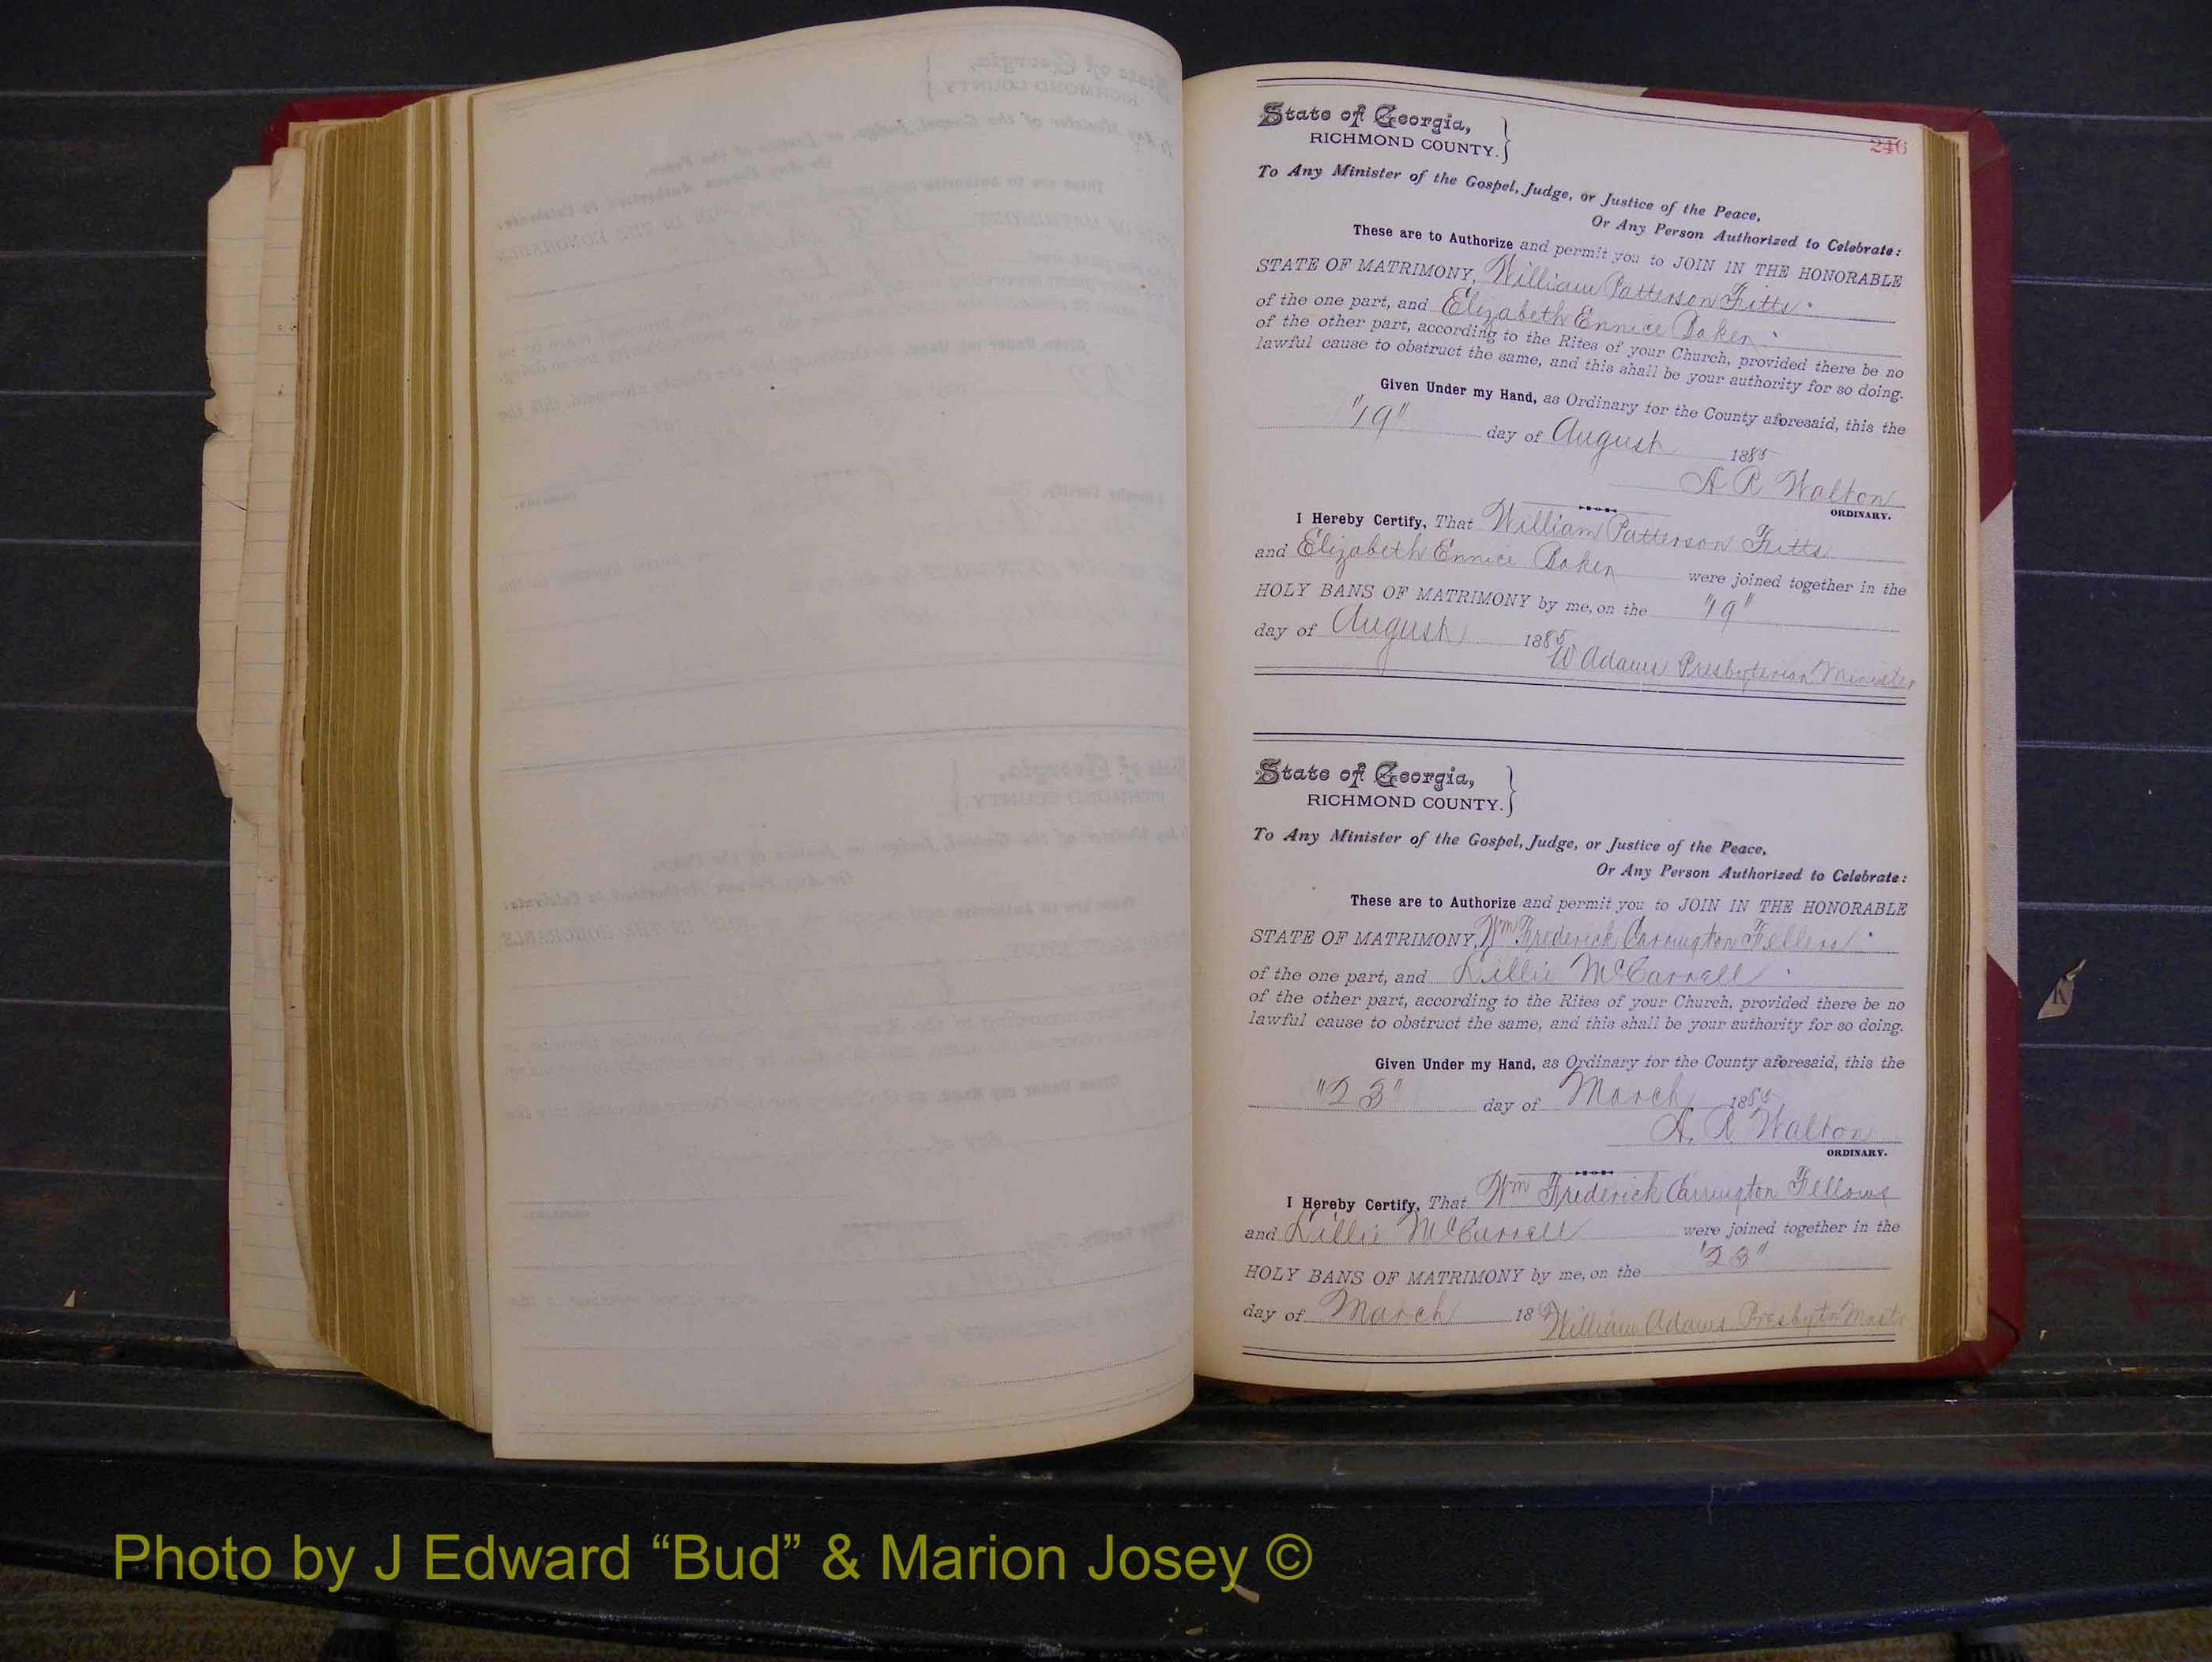 246
State of Georgia,
RICHMOND COUNTY.
To Any Minister of the Gospel, Judge, or Justice of the Peace,
Or Any Person Authorized to Celebrate:
These are to Authorize and permit you to JOIN IN THE HONORABLE
STATE OF MATRIMONY, William Patterson Fitts
of the one part, and Elizabeth Ennice Baker
of the other part, according to the Rites of your Church, provided there be no
lawful cause to obstruct the same, and this shall be your authority for so doing.
Given Under my Hand, as Ordinary for the County aforesaid, this the
"19" day of August 1885
A. R. Walton
ORDINARY.
I Hereby Certify, That William Patterson Fitts
and Elizabeth Ennice Baker were joined together in the
HOLY BANS OF MATRIMONY by me, on the "19"
day of August 1885
W Adams Presbyterian Minister
State of Georgia,
RICHMOND COUNTY.
To Any Minister of the Gospel, Judge, or Justice of the Peace,
Or Any Person Authorized to Celebrate:
These are to Authorize and permit you to JOIN IN THE HONORABLE
STATE OF MATRIMONY, Wm Frederick Carrington Fellows
of the one part, and Lillie McCarrell
of the other part, according to the Rites of your Church, provided there be no
lawful cause to obstruct the same, and this shall be your authority for so doing.
Given Under my Hand, as Ordinary for the County aforesaid, this the
"23" day of March 1885
A. R. Walton
ORDINARY.
I Hereby Certify, That Wm Frederick Carrington Fellows
and Lillie McCarrell were joined together in the
HOLY BANS OF MATRIMONY by me, on the "23"
day of March 18 William Adams
Photo by J Edward “Bud” & Marion Josey ©